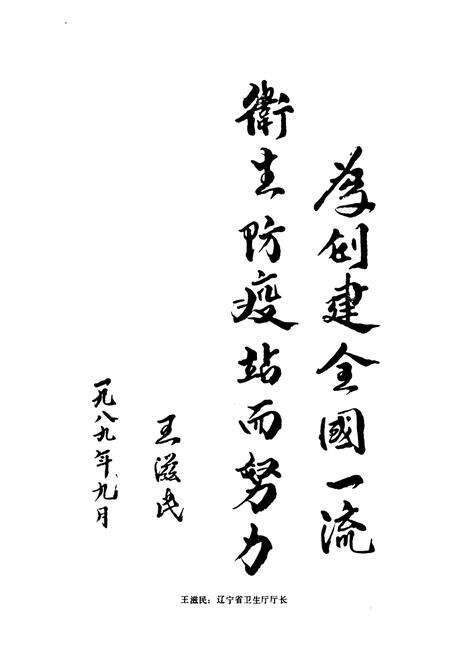 為创建全國一流
衛生防疫站而努力
王滋民
一九八九年九月
王滋民：辽宁省卫生厅厅长